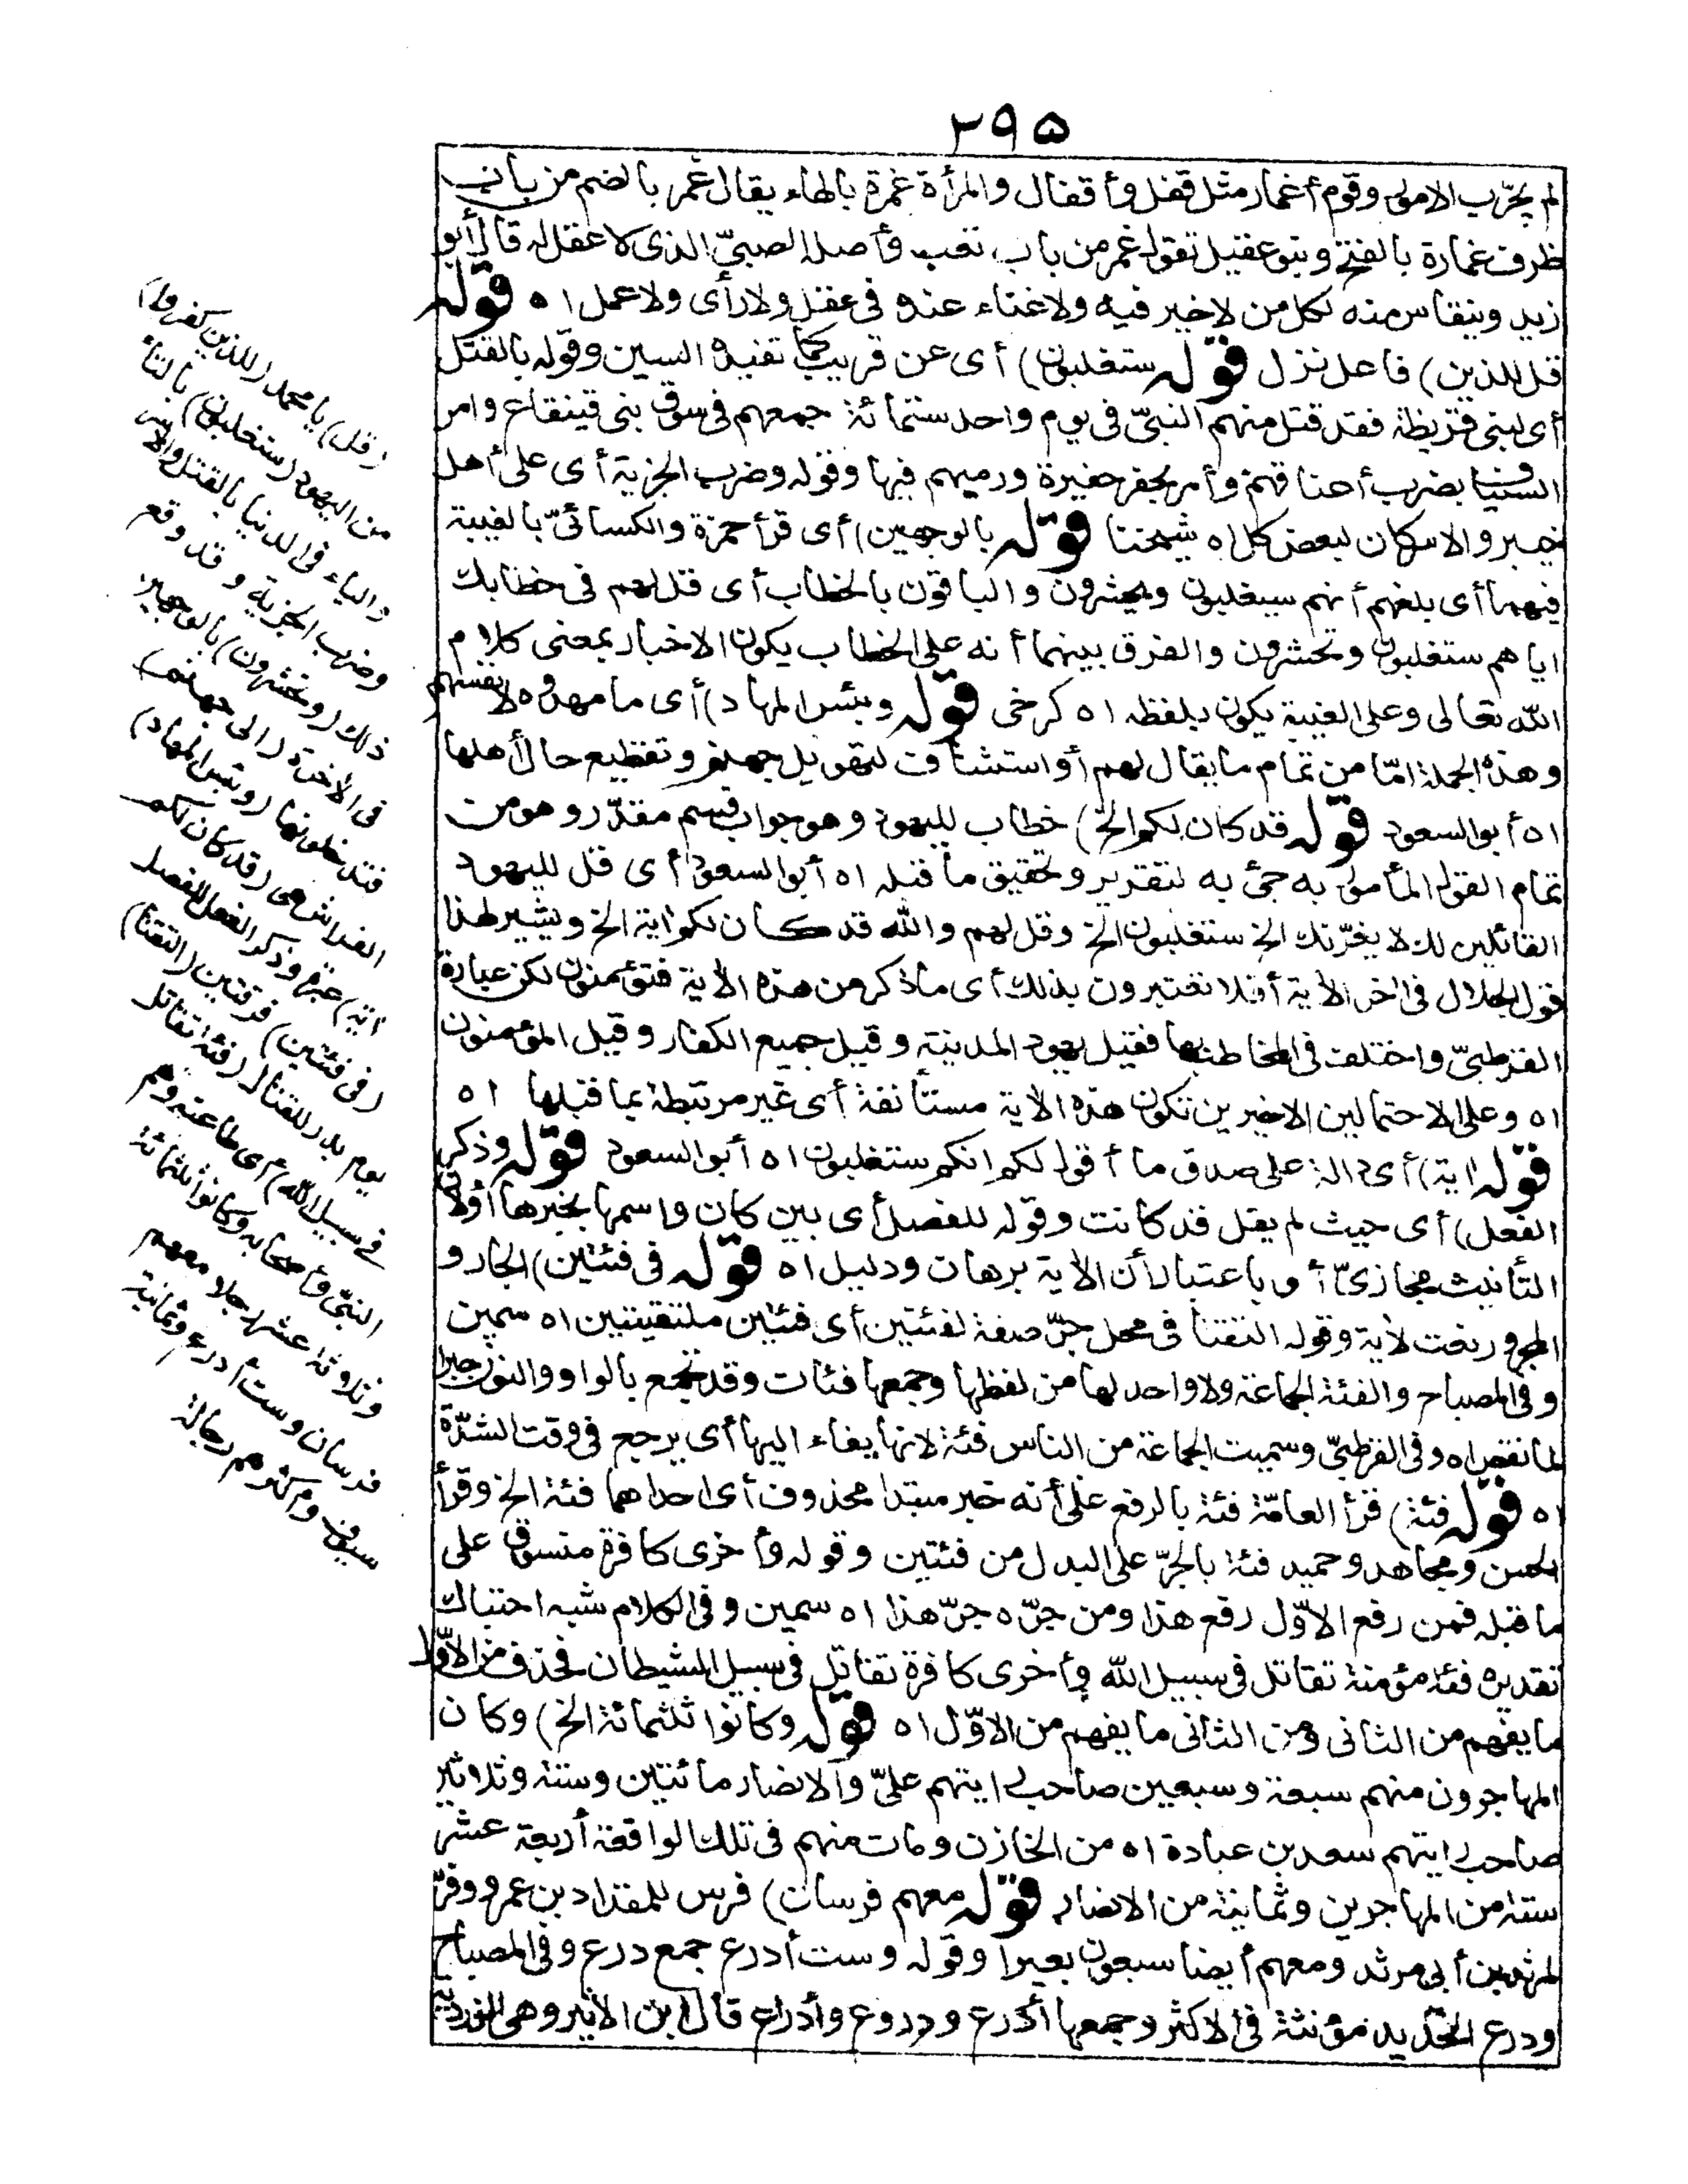 ٢٩٥
لم يجرّب الامور وقوم أغمار مثل قفل وأقفال والمرأة غمرة بالهاء يقال غمر بالضم من باب
ظرف غمارة بالفتح وبنو عقيل تقول غمر من باب تعب وأصله الصبيّ الذى لا عقل له قال أبو
زيد ويتقاس منه لكل من لا خير فيه ولا غناء عنده فى عقل ولا رأى ولا عمل اه قوله
قل للذين) فاعل نزل قوله ستغلبون) أى عن قريب كما تفيده السين وقوله بالقتل
أى لبنى قريظة فقد قتل منهم النبىّ فى يوم واحد ستمائة جمعهم فى سوق بنى قينقاع وامر
السياف بضرب أعناقهم وأمر بحفر حفيرة ورميهم فيها وقوله وضرب الجزية أى على أهل
خيبر والاسكان لبعض كل اه شيخنا قوله بالوجهين) أى قرأ حمزة والكسائىّ بالغيبة
فيهما أى بلغهم أنهم سيغلبون ويحشرون والباقون بالخطاب أى قل لهم فى خطابك
اياهم ستغلبون وتحشرون والفرق بينهما أنه على الخطاب يكون الاخبار بمعنى كلام
الله تعالى وعلى الغيبة يكون بلفظه اه كرخى قوله وبئس المهاد) أى ما مهدوه لانفسهم
وهذه الجملة امّا من تمام ما يقال لهم أو استئناف لتهويل جهنم وتفظيع حال أهلها
اه أبو السعود قوله قد كان لكم الخ) خطاب لليهود وهو جواب قسم مقدّر وهو من
تمام القول المأمور به جئ به لتقرير وتحقيق ما قبله اه أبو السعود أى قل لليهود
القائلين لك لا يغرّنك الخ ستغلبون الخ وقل لهم والله قد كان لكم اية الخ ويشير لهذا
قول الجلال فى اخر الأية أفلا تعتبرون بذلك أى ما ذكر من هذه الأية فتؤمنون لكن عبارة
القرطبىّ واختلف فى المخاطب بها فقيل يهود المدينة وقيل جميع الكفار وقيل المؤمنون
اه وعلى الاحتمالين الاخيرين تكون هذه الأية مستأنفة أى غير مرتبطة بما قبلها اه
قوله اية) أى دالة على صدق ما أقول لكم انكم ستغلبون اه أبو السعود قوله وذكر
الفعل) أى حيث لم يقل قد كانت وقوله للفصل أى بين كان واسمها بخبرها أو لان
التأنيث مجازىّ أو باعتبار أن الأية برهان ودليل اه قوله فى فئتين) الجار و
المجرور نعت لأية وقوله التقتا فى محل جرّ صفة لفئتين أى فئتين ملتقيتين اه سمين
وفى المصباح والفئة الجماعة ولا واحد لها من لفظها وجمعها فئات وقد تجمع بالواو والنون جبرا
لما نقص اه وفى القرطبىّ وسميت الجماعة من الناس فئة لانها يفاء اليها أى يرجع فى وقت الشدّة
اه قوله فئة) قرأ العامّة فئة بالرفع على أنه خبر مبتدا محذوف أى احداهما فئة الخ وقرأ
الحسن ومجاهد وحميد فئة بالجرّ على البدل من فئتين وقوله وأخرى كافرة منسوق على
ما قبله فمن رفع الاوّل رفع هذا ومن جرّه جرّ هذا اه سمين وفى الكلام شبه احتباك
تقديره فئة مؤمنة تقاتل فى سبيل الله وأخرى كافرة تقاتل فى سبيل الشيطان فحذف من الأوّل
ما يفهم من الثانى ومن الثانى ما يفهم من الاوّل اه قوله وكانوا ثلثمائة الخ) وكان
المهاجرون منهم سبعة وسبعين صاحب رايتهم علىّ والانصار مائتين وستة وثلاثين
صاحب رايتهم سعد بن عبادة اه من الخازن ومات منهم فى تلك الواقعة أربعة عشر
ستة من المهاجرين وثمانية من الانصار قوله معهم فرسان) فرس للمقداد بن عمرو وفرس
لمرثد بن أبى مرثد ومعهم أيضا سبعون بعيرا وقوله وست أدرع جمع درع وفى المصباح
ودرع الحديد مؤنثة فى الاكثر وجمعها أدرع ودروع وأدراع قال ابن الأثير وهى الزردية
(قل) يا محمد (للذين كفروا)
من اليهود (ستغلبون) بالتاء
والياء فى الدنيا بالقتل والاسر
وضرب الجزية وقد وقع
ذلك (وتحشرون) بالوجهين
فى الاخرة (الى جهنم)
فتدخلونها (وبئس المهاد)
الفراش هى (قد كان لكم
اية) عبرة وذكر الفعل للفصل
(فى فئتين) فرقتين (التقتا)
يوم بدر للقتال (فئة تقاتل
فى سبيل الله) أى طاعته وهم
النبىّ وأصحابه وكانوا ثلثمائة
وثلاثة عشر رجلا معهم
فرسان وست أدرع وثمانية
سيوف وأكثرهم رجالة